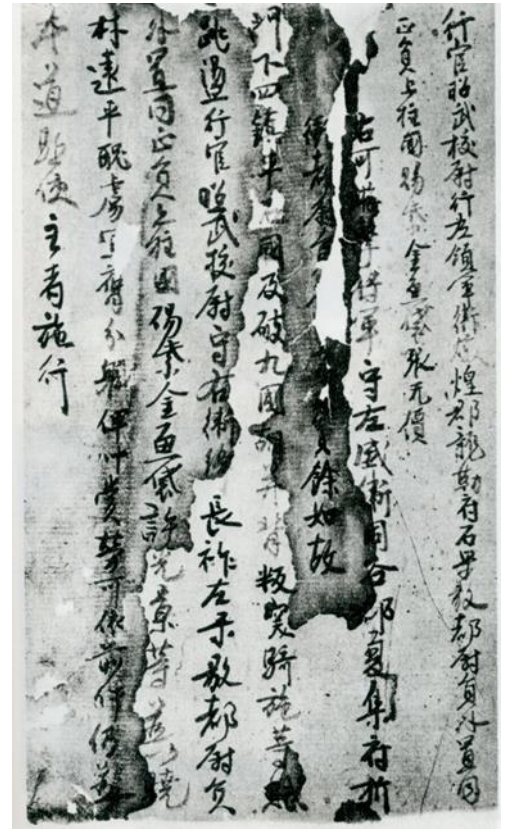 行官昭武校尉行左領軍衛燉煌郡龍勒府右果毅都尉員外置同
正員上柱國賜紫金魚袋張元價
右可 將軍守左威衛同谷郡夏集府折
衝都尉 員 餘如故
門下四鎮平 國及破九國胡并背叛突騎施等
跳盪行官昭武校尉守右衛 長祚左果毅都尉員
外置同正員上柱國賜紫金魚袋許光景等並
林遠平醜虜 奮 賞勞可依前件仍
本道驅使主者施行